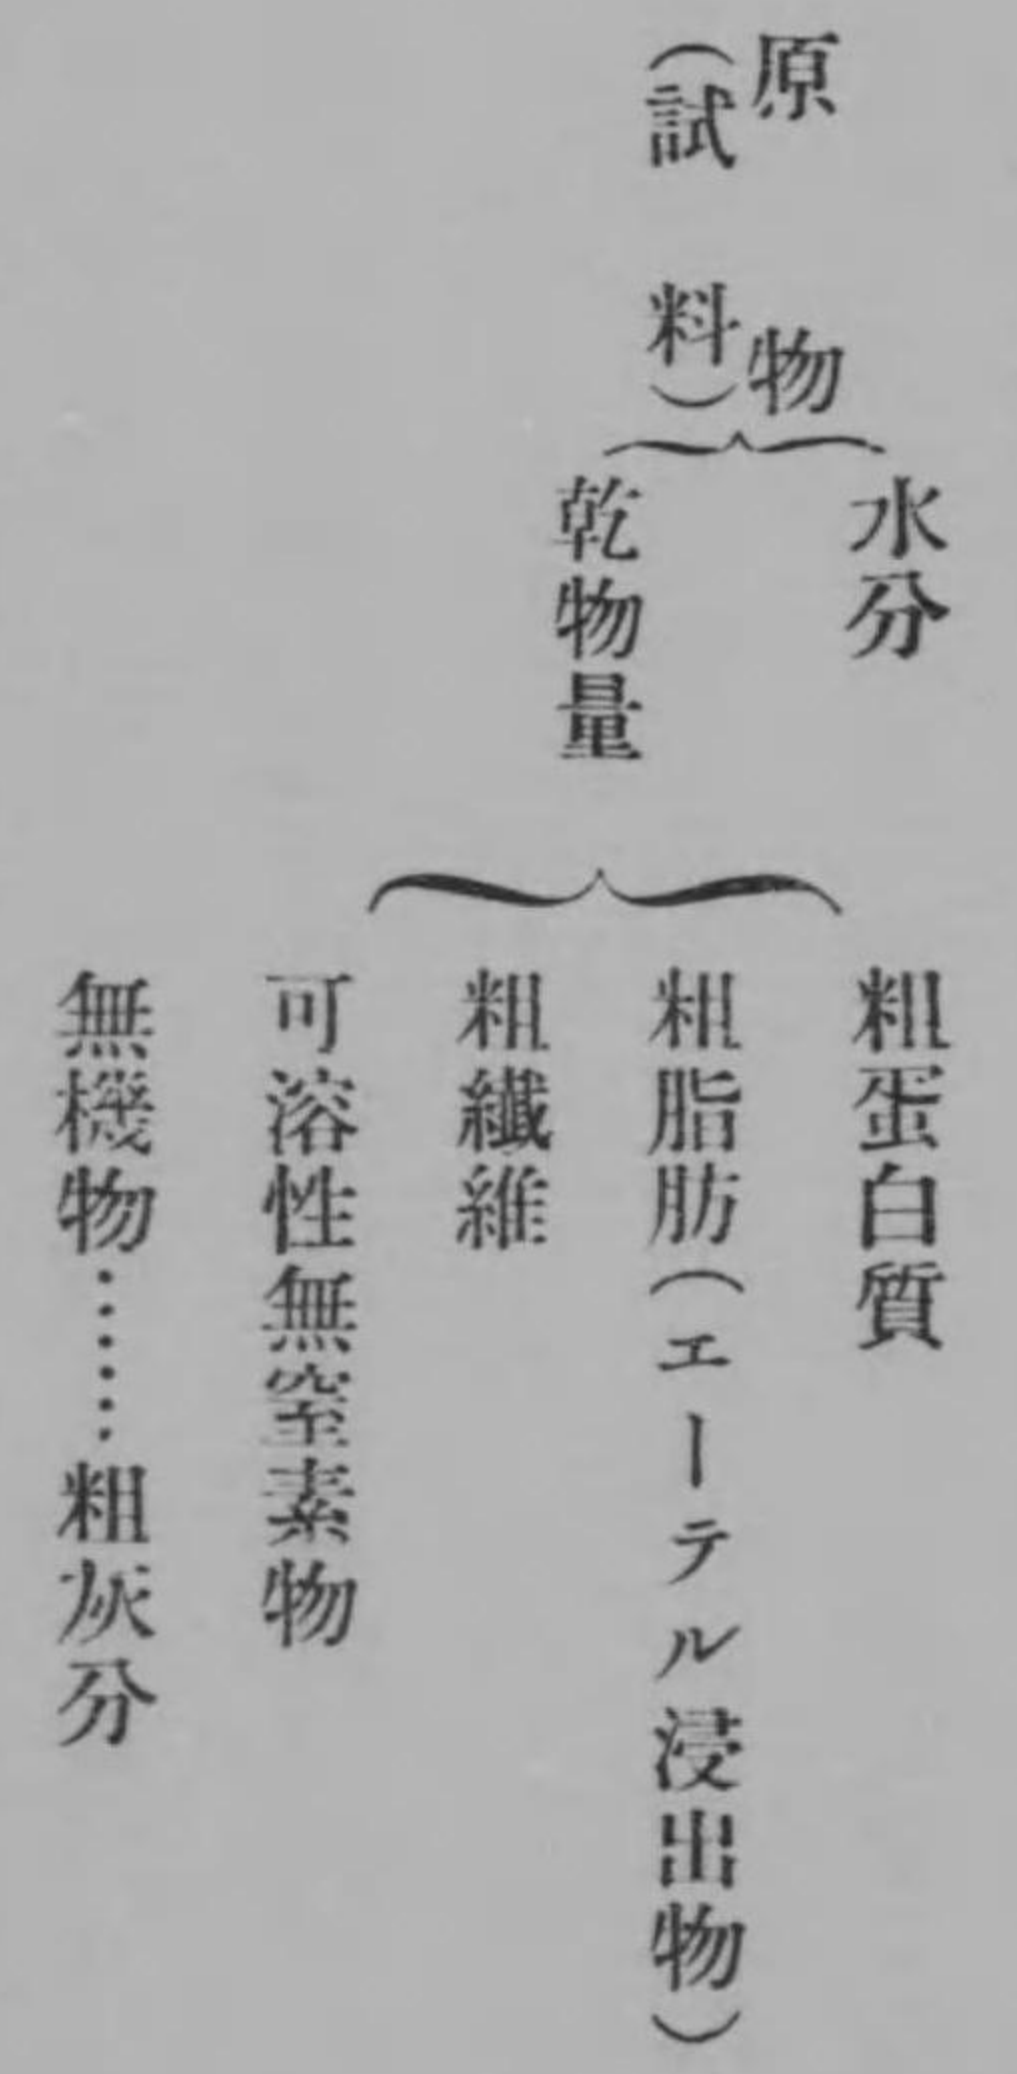 原物
(試料)
水分
乾物量
粗蛋白質
粗脂肪(エーテル浸出物)
粗纎維
可溶性無窒素物
無機物……粗灰分